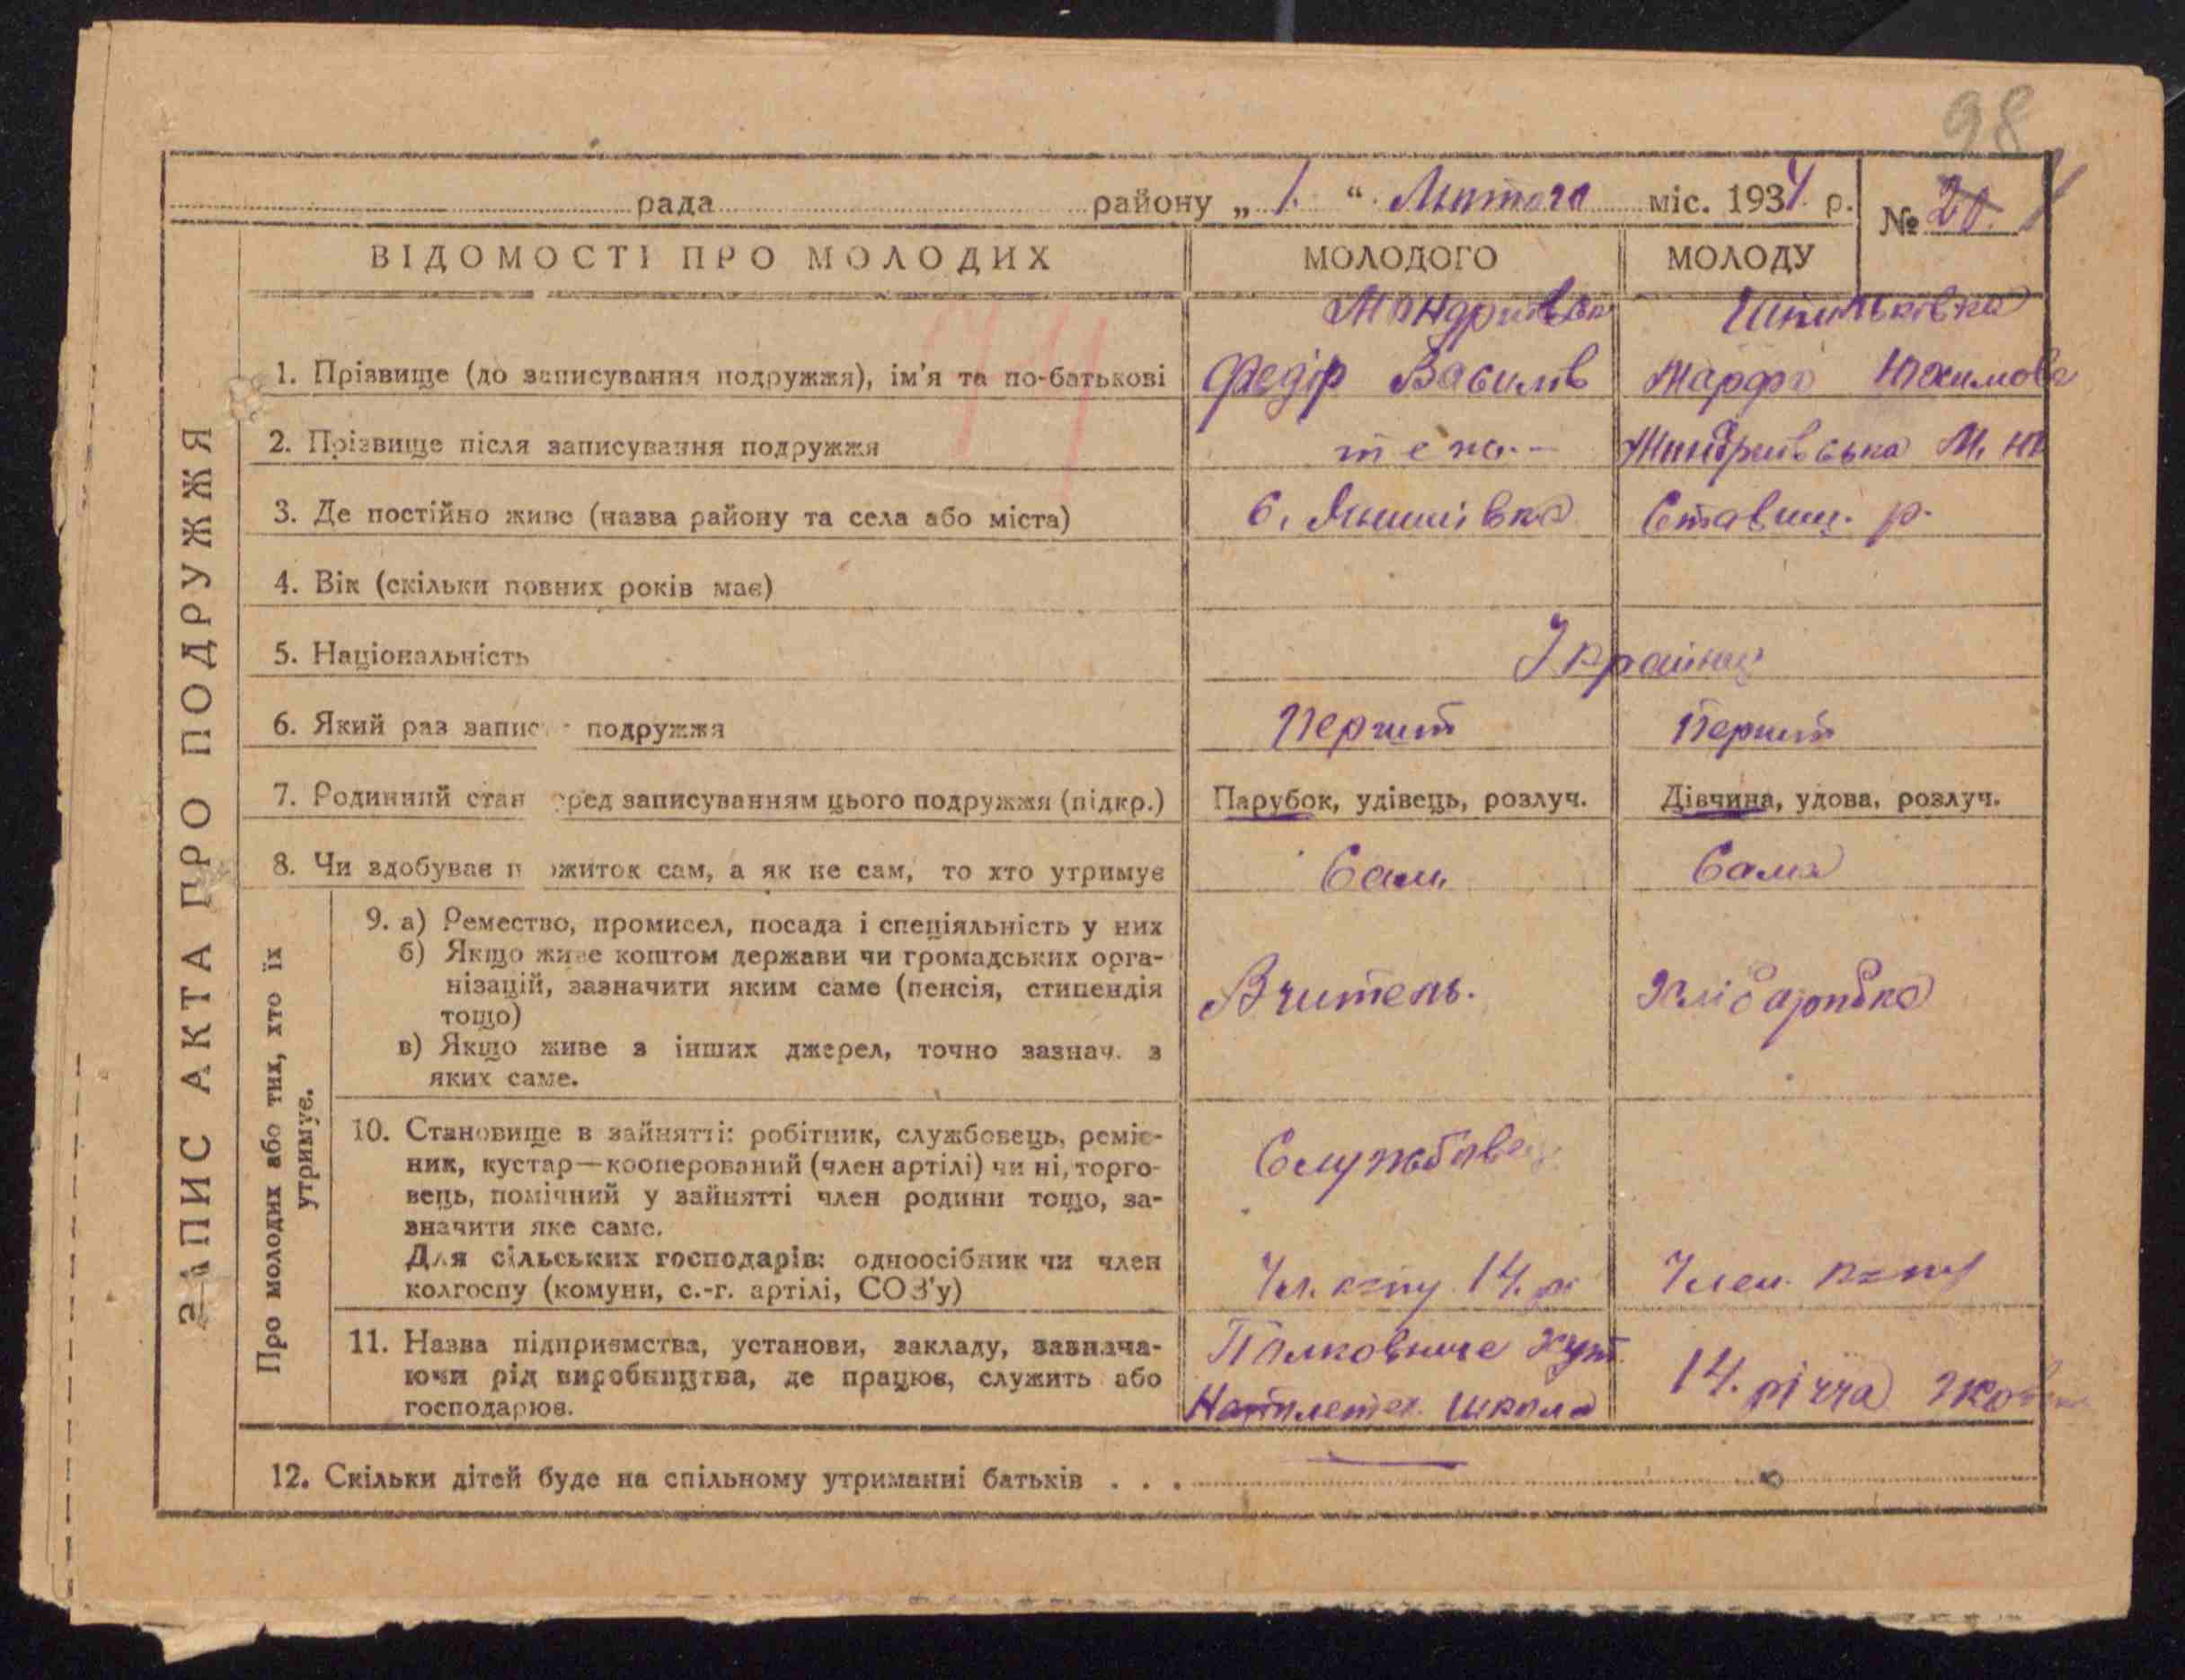 98
рада району „ 1. “ Лютого міс. 1934 р. № 20. 1
ВІДОМОСТІ ПРО МОЛОДИХ МОЛОДОГО МОЛОДУ
74
ЗАПИС АКТА ПРО ПОДРУЖЖЯ
1. Прізвище (до записування подружжя), ім'я та по-батькові
Федір Василів
Марфа Юхимова
2. Прізвище після записування подружжя
теж.-
3. Де постійно живе (назва району та села або міста) с. Ставищ. р.
4. Вік (скільки повних років має)
5. Національність Україниц
6. Який раз запис подружжя Перший Перший
7. Родинний стан еред записуванням цього подружжя (підкр.) Парубок, удівець, розлуч. Дівчина, удова, розлуч.
8. Чи здобуває п ожиток сам, а як не сам, то хто утримує Сам Сама
Про молодих або тих, хто їх
утримує.
9. а) Ремество, промисел, посада і спеціяльність у них
б) Якщо живе коштом держави чи громадських орга-
нізацій, зазначити яким саме (пенсія, стипендія
тощо)
в) Якщо живе з інших джерел, точно зазнач. з
яких саме.
Вчитель.
Хліборобка
10. Становище в зайнятті: робітник, службовець, реміс-
ник, кустар—кооперований (член артілі) чи ні, торго-
вець, помічний у зайнятті член родини тощо, за-
значити яке саме.
Для сільських господарів: одноосібник чи член
колгоспу (комуни, с.-г. артілі, СОЗ'у)
Службовец
Чл. к=пу 14. р
Член к=пу
11. Назва підприємства, установи, закладу, зазнача-
ючи рід виробництва, де працює, служить або
господарює.
школа
14. річча Жовтн
12. Скільки дітей буде на спільному утриманні батьків . . .